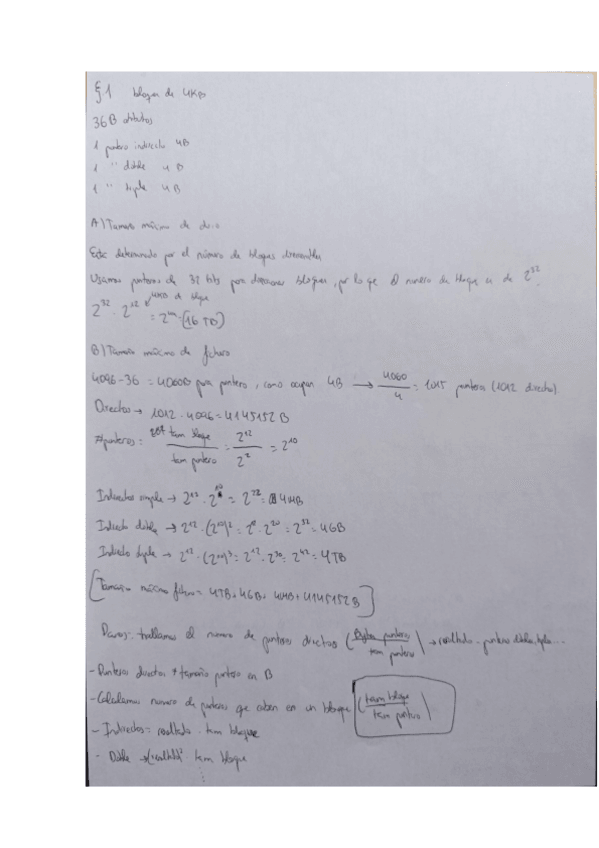 §1 bloques de 4KBs
36B atributos
1 puntero indirecto 4B
1 " doble 4B
1 " triple 4B
A) Tamaño máximo de disco
Está determinado por el número de bloques direccionables
Usamos punteros de 32 bits para direccionar bloques, por lo que el número de bloque es de 2^32.
4KB de bloque
2^32 · 2^12 = 2^44 (16 TB)
B) Tamaño máximo de fichero
4096-36 = 4060B para punteros, como ocupan 4B → 4060/4 = 1015 punteros (1012 directos)
Directos → 1012 · 4096 = 4145152 B
#punteros = tam bloque/tam puntero = 2^12/2^2 = 2^10
Indirectos simple → 2^12 · 2^10 = 2^22 = 4MB
Indirecto doble → 2^12 · (2^10)^2 = 2^12 · 2^20 = 2^32 = 4GB
Indirecto triple → 2^12 · (2^10)^3 = 2^12 · 2^30 = 2^42 = 4TB
[Tamaño máximo fichero = 4TB + 4GB + 4MB + 4145152B]
Pasos: hallamos el numero de punteros directos (Bytes punteros/tam puntero) → resultado - punteros doble, triple...
- Punteros directos * tamaño puntero en B
- Calculamos numero de punteros que caben en un bloque (tam bloque/tam puntero)
- Indirectos = resultado · tam bloque
- Doble → (resultado)² tam bloque
⋮